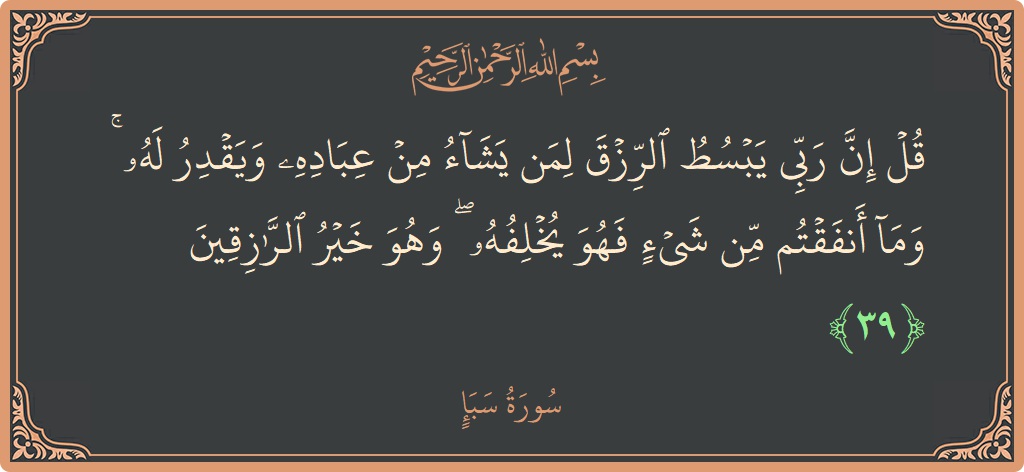 بِسْمِ اللهِ الرَّحْمٰنِ الرَّحِيْمِ
قُلۡ إِنَّ رَبِّي يَبۡسُطُ ٱلرِّزۡقَ لِمَن يَشَآءُ مِنۡ عِبَادِهِۦ وَيَقۡدِرُ لَهُۥۚ
وَمَآ أَنفَقۡتُم مِّن شَيۡءٖ فَهُوَ يُخۡلِفُهُۥۖ وَهُوَ خَيۡرُ ٱلرَّٰزِقِينَ
﴿٣٩﴾
سُورَةُ سَبَإٍ